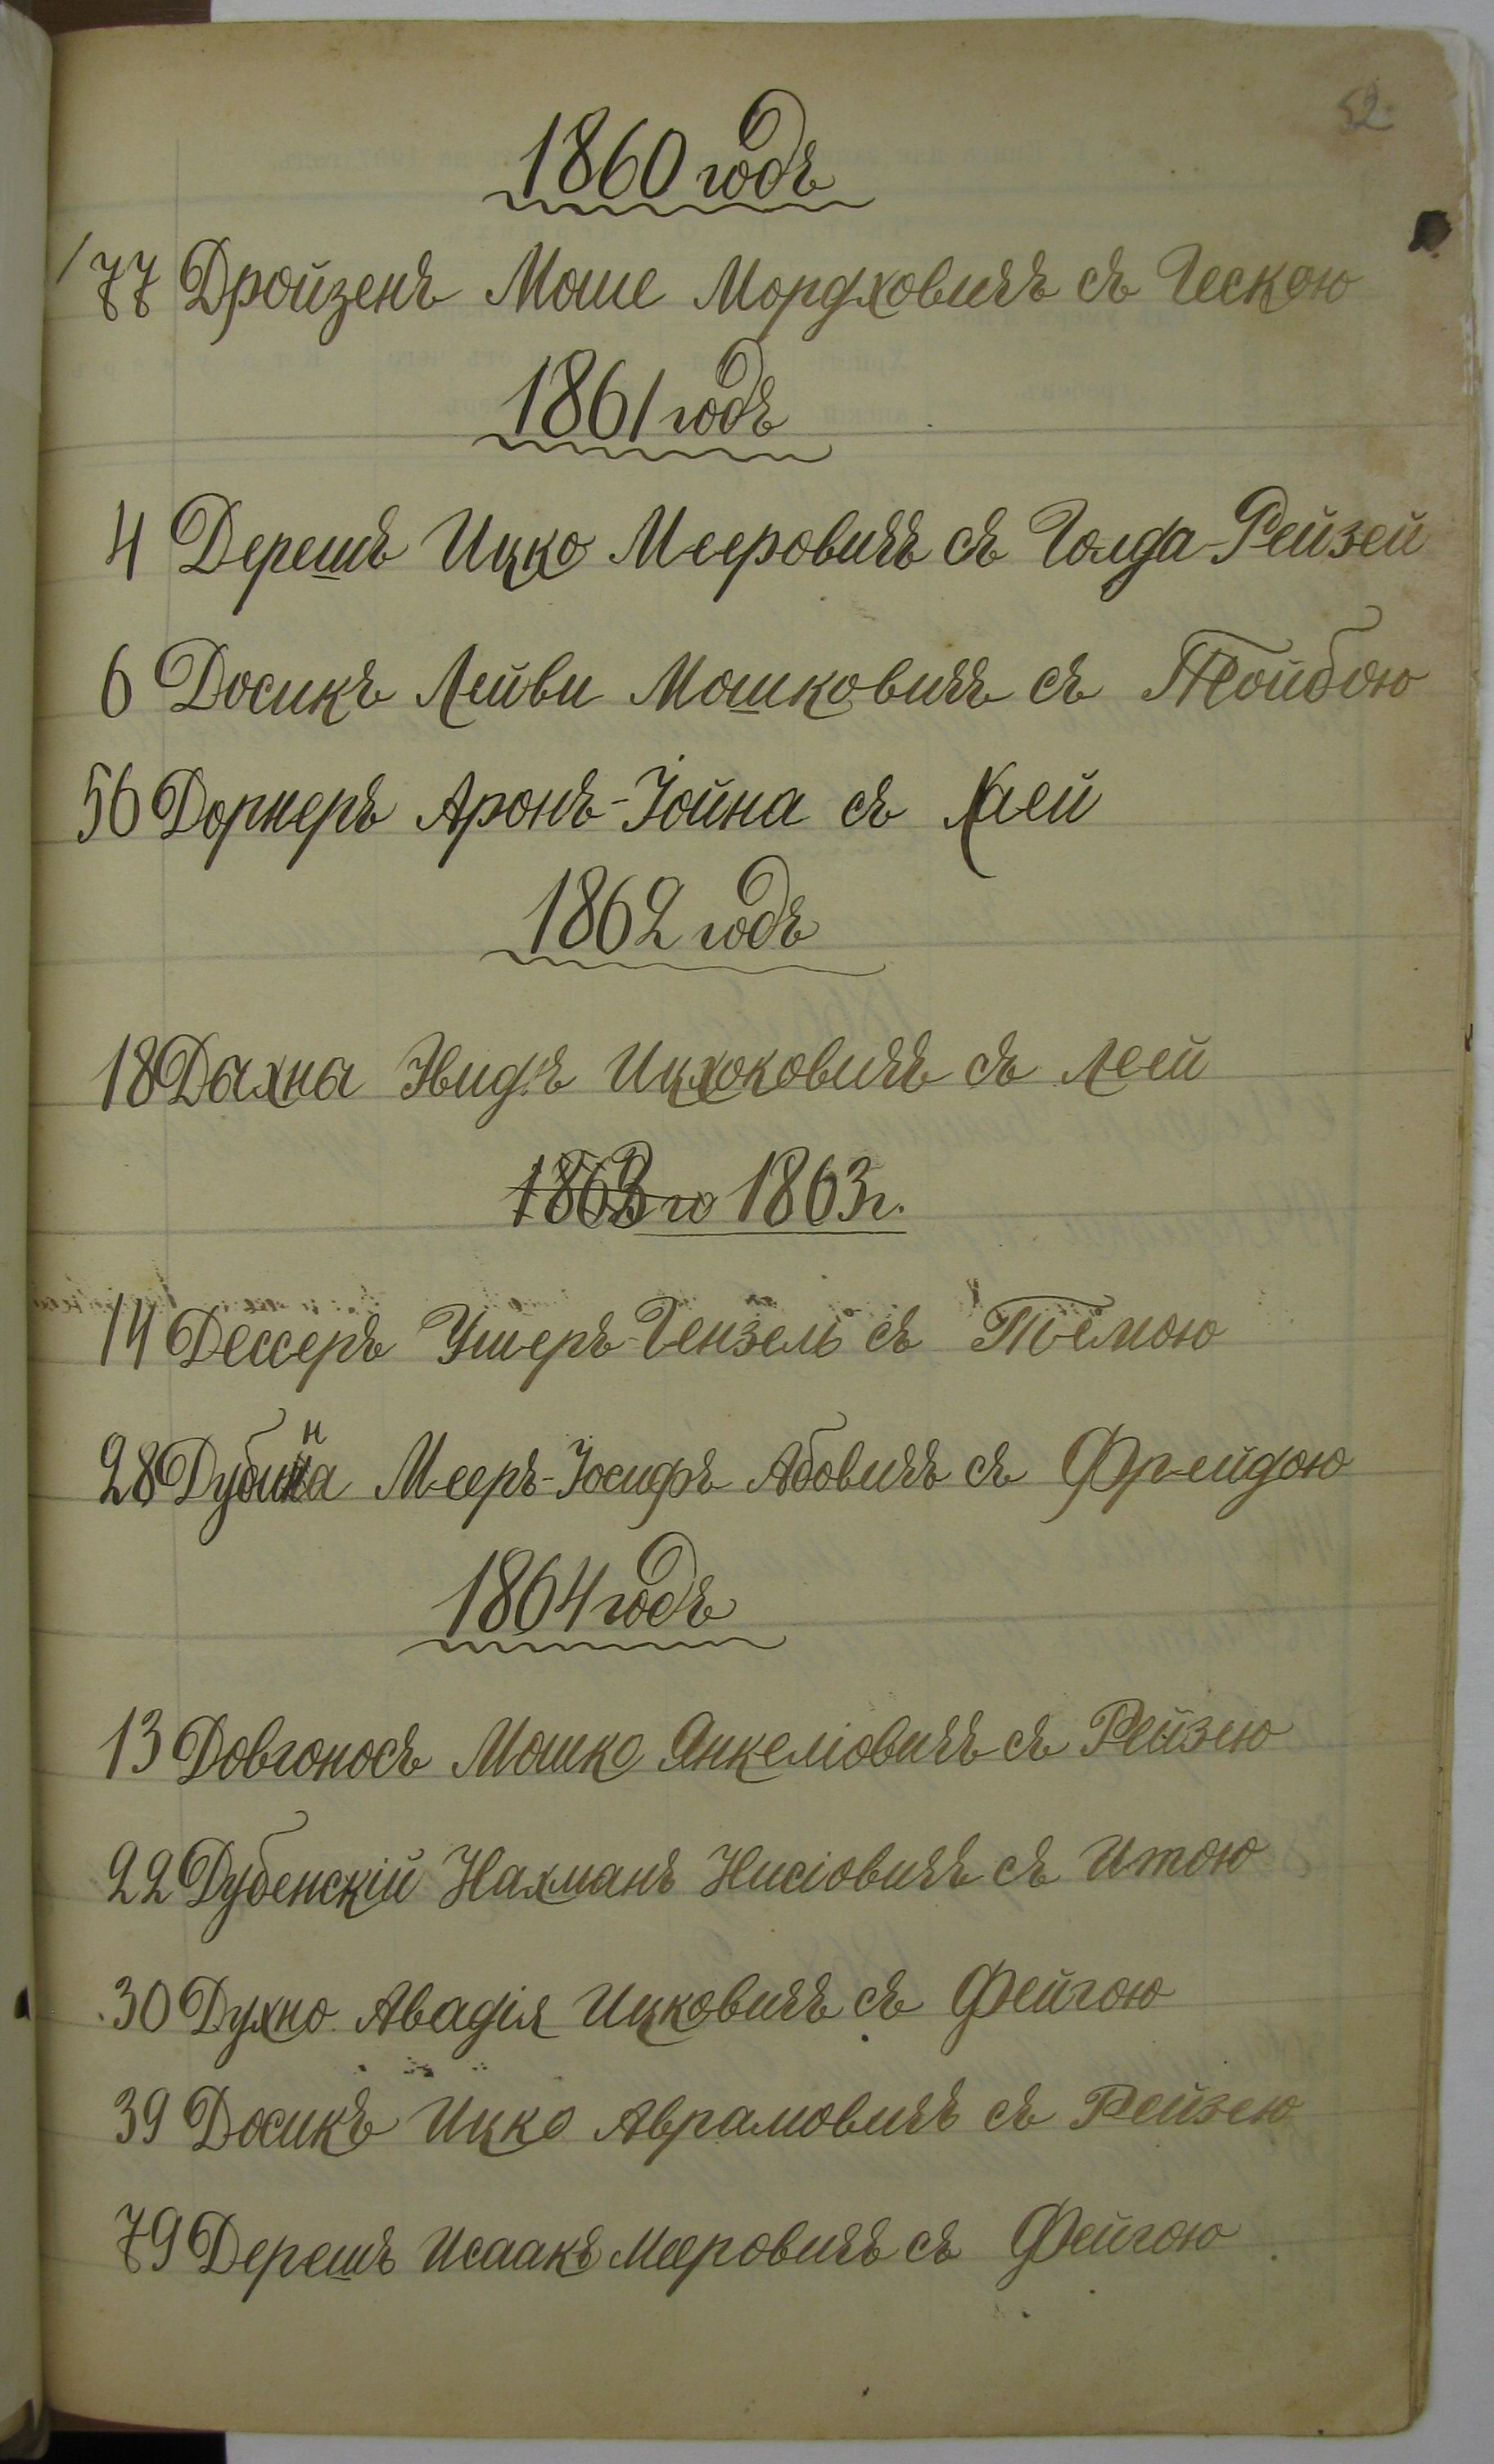 52
1860 годъ
77 Дройзенъ Моше Мордховичъ съ Ческою
1861 годъ
4 Дерешъ Ицко Мееровичъ съ Голда-Рейзей
6 Досикъ Лейви Мошковичъ съ Тойбою
56 Дорнеръ Аронъ-Іойна съ Хаей
1862 годъ
18 Дахна Ицхоковичъ съ Леей
1863 го 1863 г.
14 Дессеръ Ушеръ-Гензель съ Темою
28 Дубина Мееръ-Іосифъ Абовичъ съ Фрейдою
1864 годъ
13 Довгоносъ Мошко Янкеліовичъ съ Рейзею
22 Дубенскій Нахманъ Нисіовичъ съ Итою
30 Духно Авадія Ицковичъ съ Фейгою
39 Досикъ Ицко Аврамовичъ съ Рейзею
79 Дерешъ Исаакъ Мееровичъ съ Фейгою